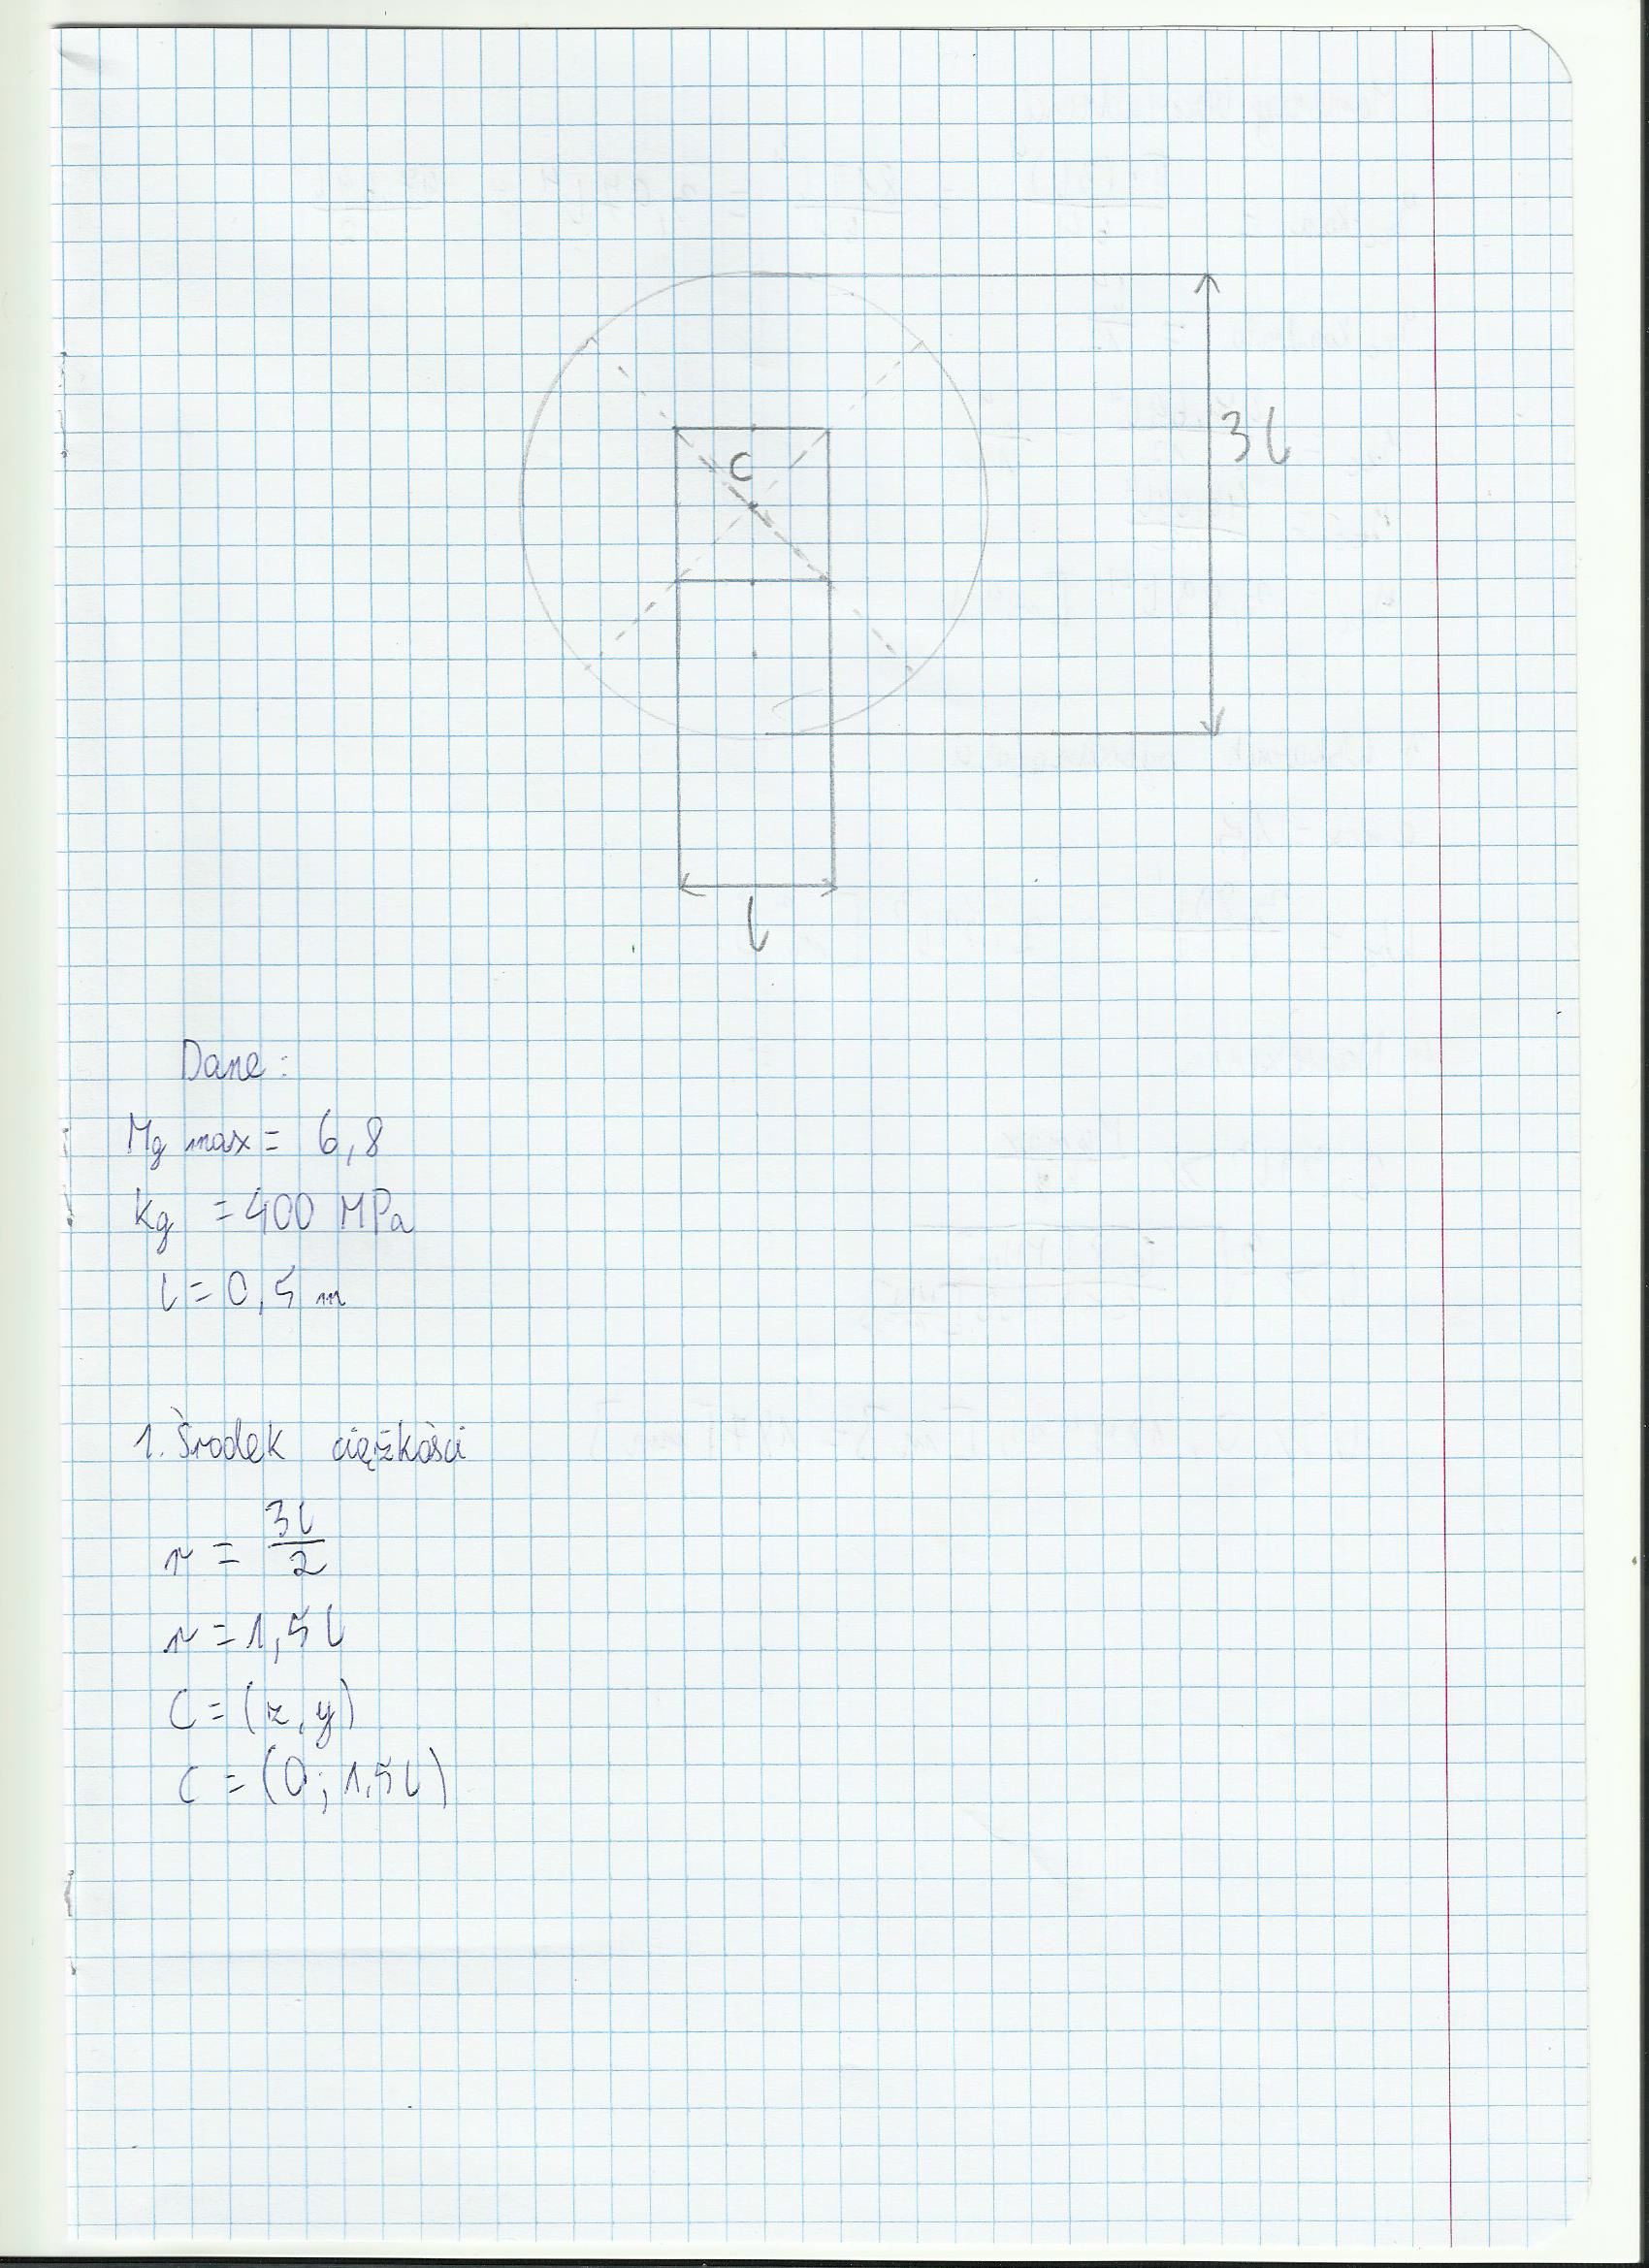 3l
C
l
Dane:
Mg max = 6,8
kg = 400 MPa
l = 0,5 m
1. Środek ciężkości
r = 3l/2
r = 1,5 l
C = (z, y)
C = (0; 1,5l)